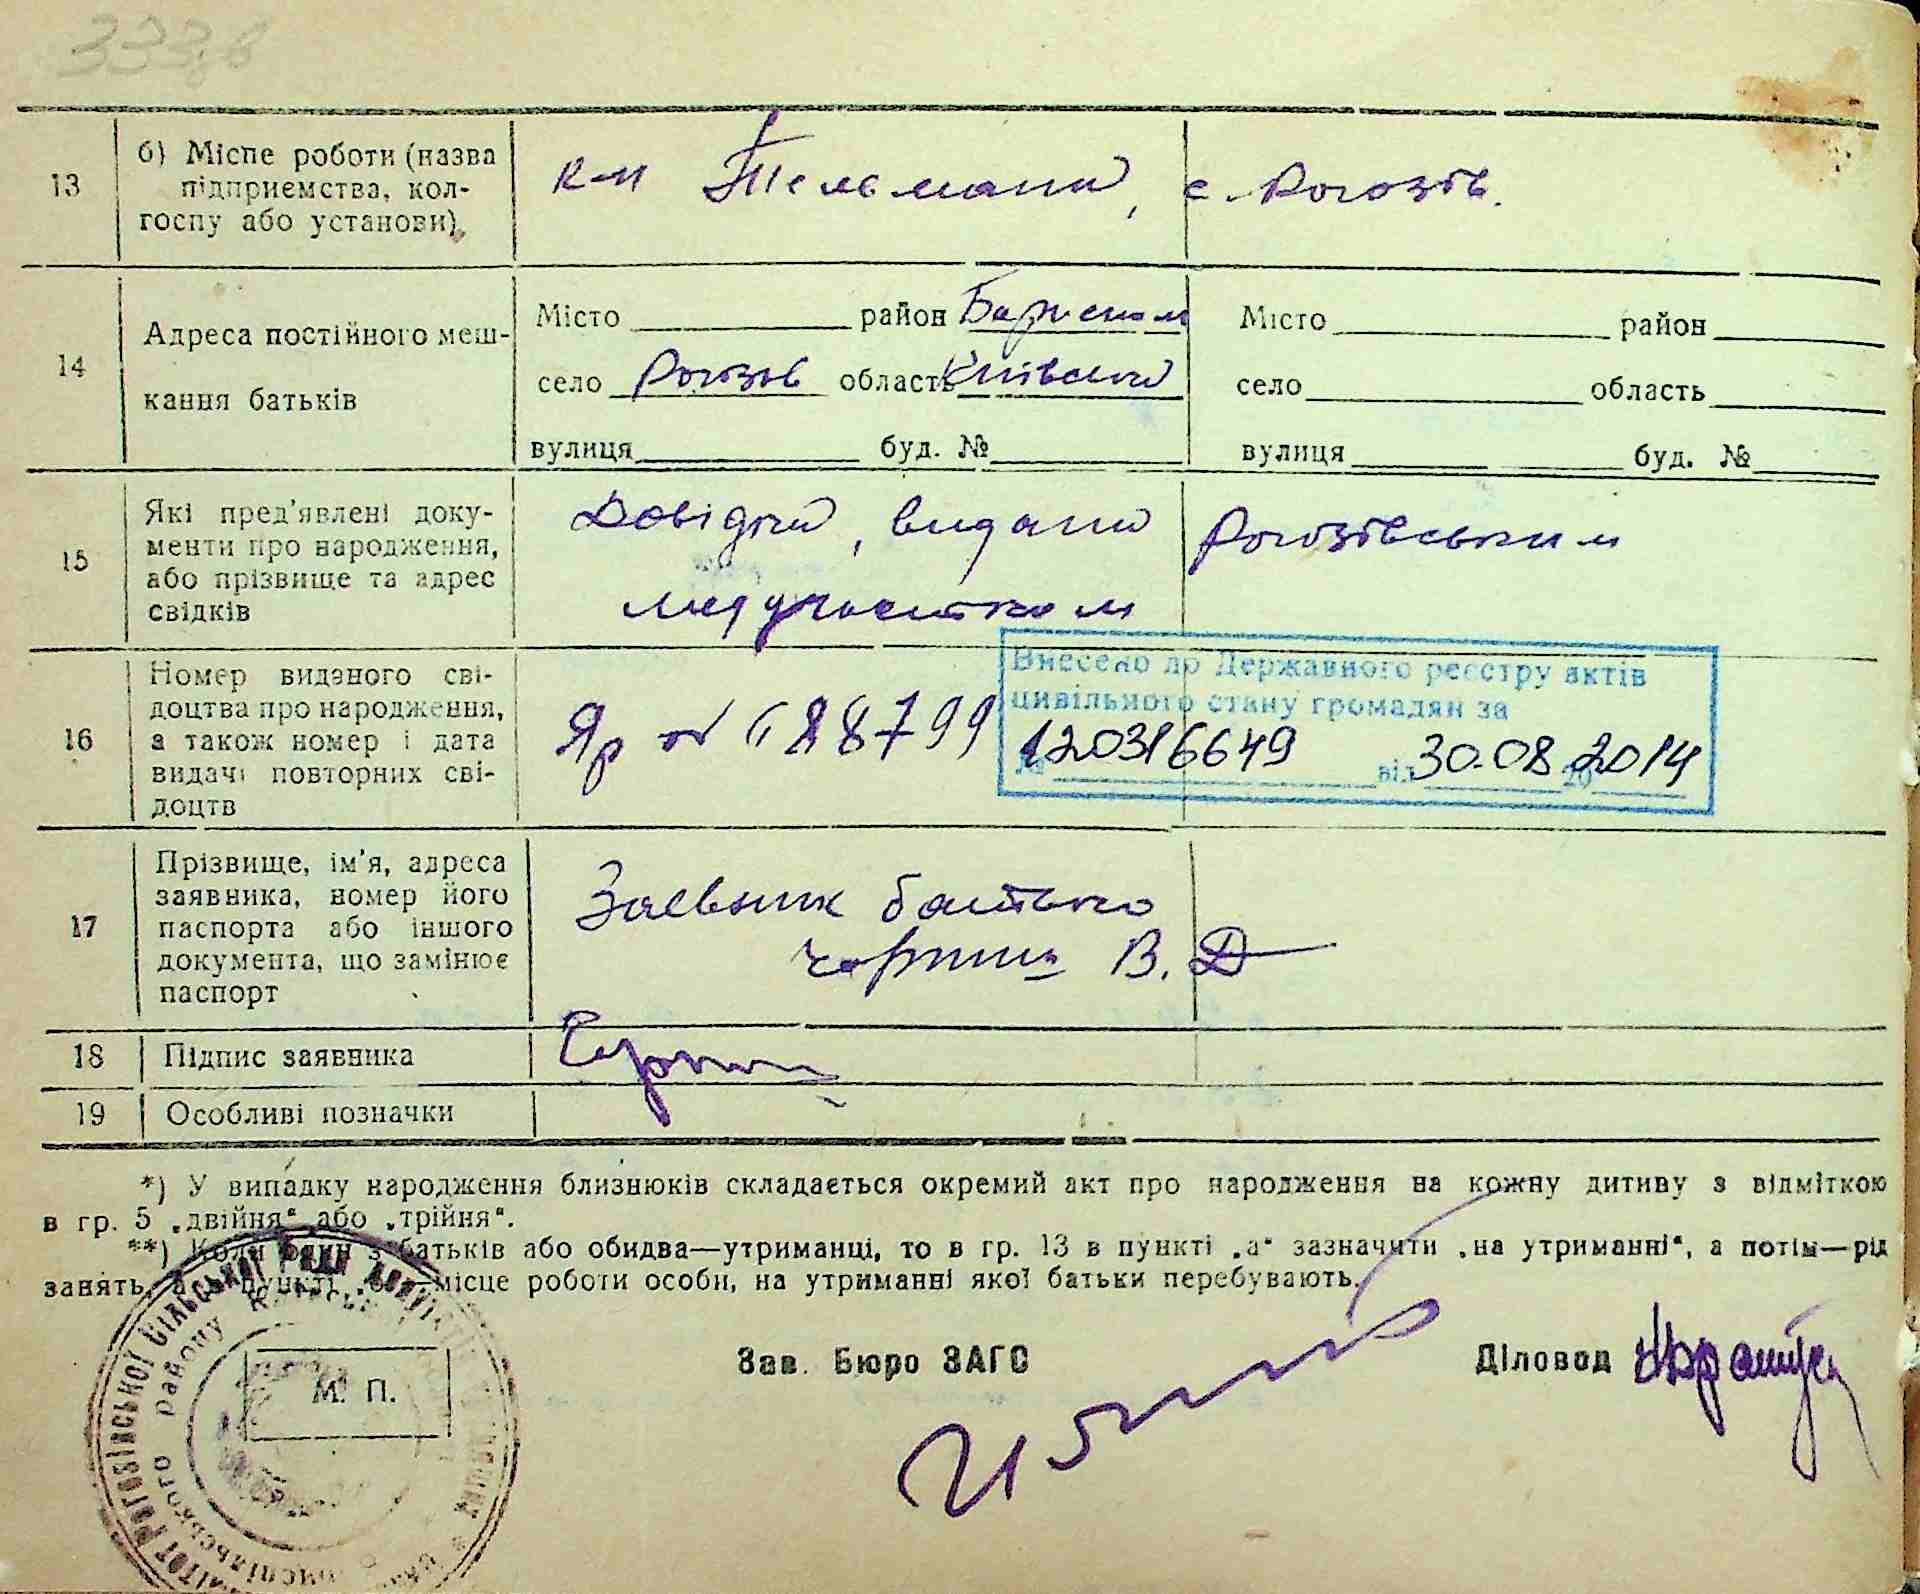 13
б) Місце роботи (назва
підприємства, кол-
госпу або установи)
к-п Тельмана, с Рогозів.
14
Адреса постійного меш-
кання батьків
Місто район Бориспол
село Рогозів область Київської
вулиця буд. №
Місто район
село область
вулиця буд. №
15
Які пред'явлені доку-
менти про народження,
або прізвище та адрес
свідків
Довідка, видана Рогозівським
медучастком
16
Номер виданого сві-
доцтва про народження,
а також номер і дата
видачі повторних сві-
доцтв
Яр № 688799
Внесено до Державного реєстру актів
цивільного стану громадян за
№ 120316649 від 30.08 2014
17
Прізвище, ім'я, адреса
заявника, номер його
паспорта або іншого
документа, що замінює
паспорт
Заевник батько
В. Д
18
Підпис заявника
19
Особливі позначки
*) У випадку народження близнюків складається окремий акт про народження на кожну дитину з відміткою
в гр. 5 „двійня“ або „трійня“.
**) Коли один з батьків або обидва—утриманці, то в гр. 13 в пункті „а“ зазначити „на утриманні“, а потім—рід
занять, а в пункті „б“—місце роботи особи, на утриманні якої батьки перебувають.
Рогозівської Сільської Ради
району
М. П.
Зав. Бюро ЗАГС
Діловод